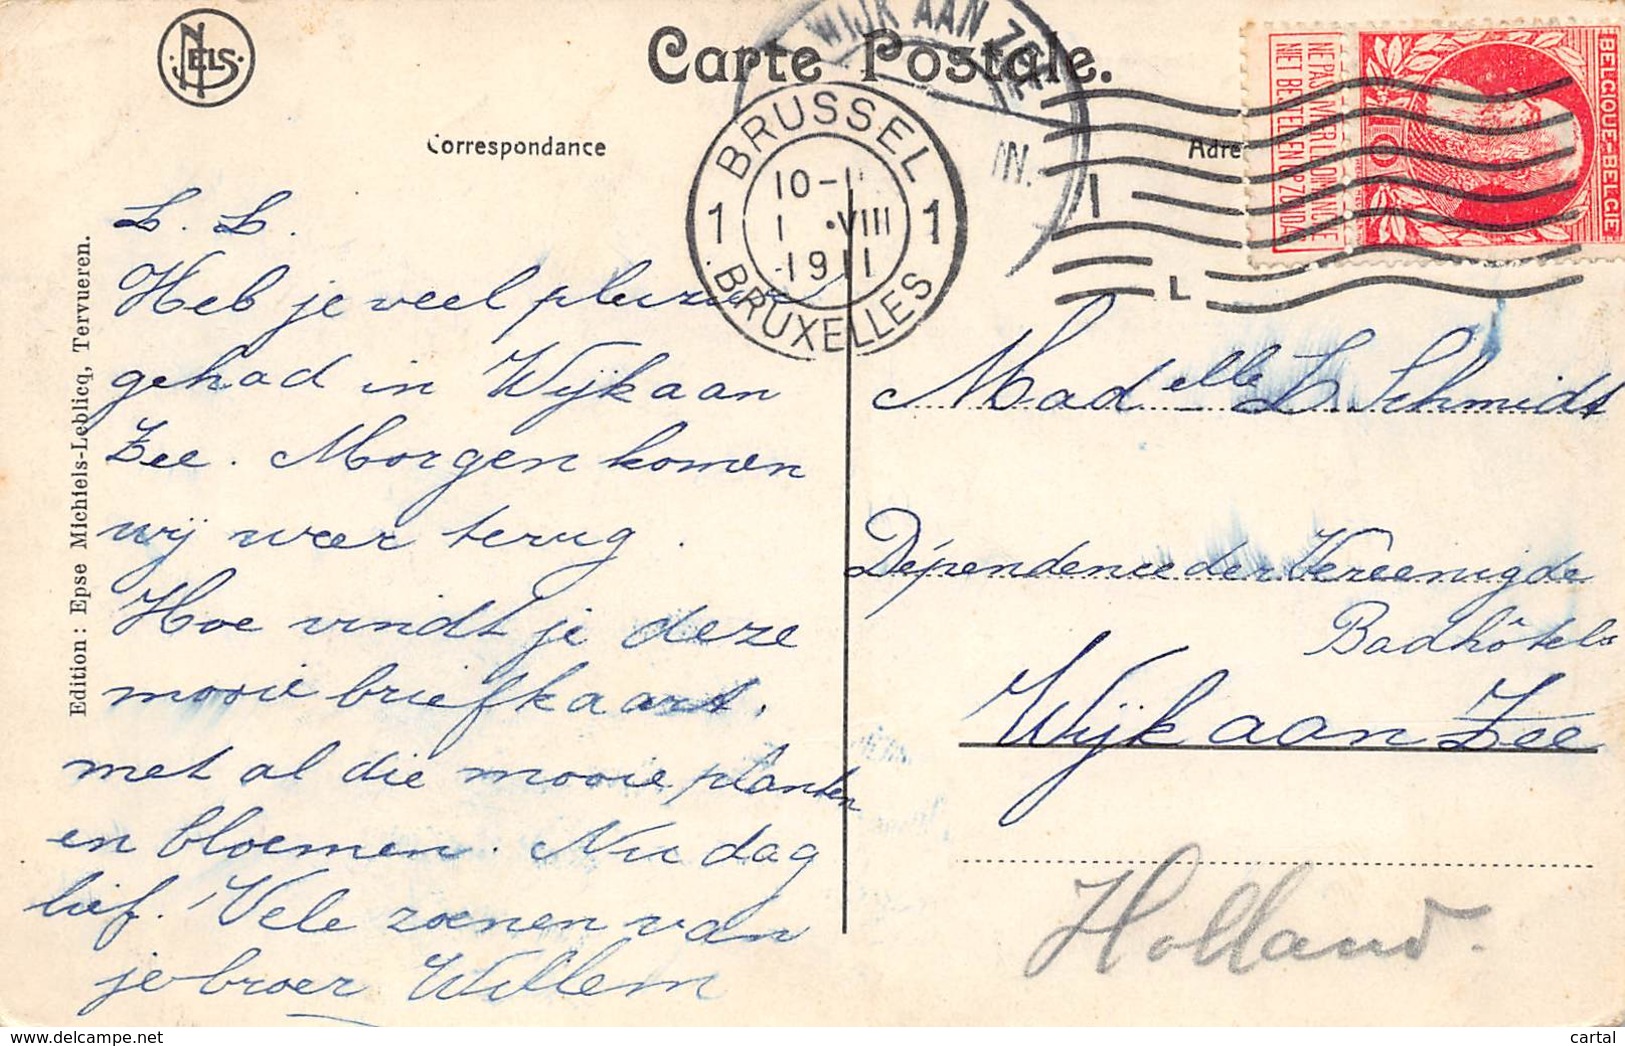 NELS
Carte Postale.
Correspondance
WIJK AAN ZEE
BRUSSEL
10-11
1 •VIII
1911
1 1
BRUXELLES
L
BELGIQUE-BELGIE
10
NE PAS LIVRER LE DIMANCHE
NIET BESTELLEN OP ZONDAG
Adre
Edition: Epse Michiels-Leblicq, Tervueren.
L. L.
Heb je veel plezier
gehad in Wijk aan
Zee. Morgen komen
wij weer terug.
Hoe vindt je deze
mooie briefkaart.
met al die mooie planten
en bloemen. Nu dag
lief. Vele zoenen van
je broer Willem
Madelle L. Schmidt
Dépendence der Vereenigde
Badhôtels
Wijk aan Zee
Holland.
cartal
www.delcampe.net